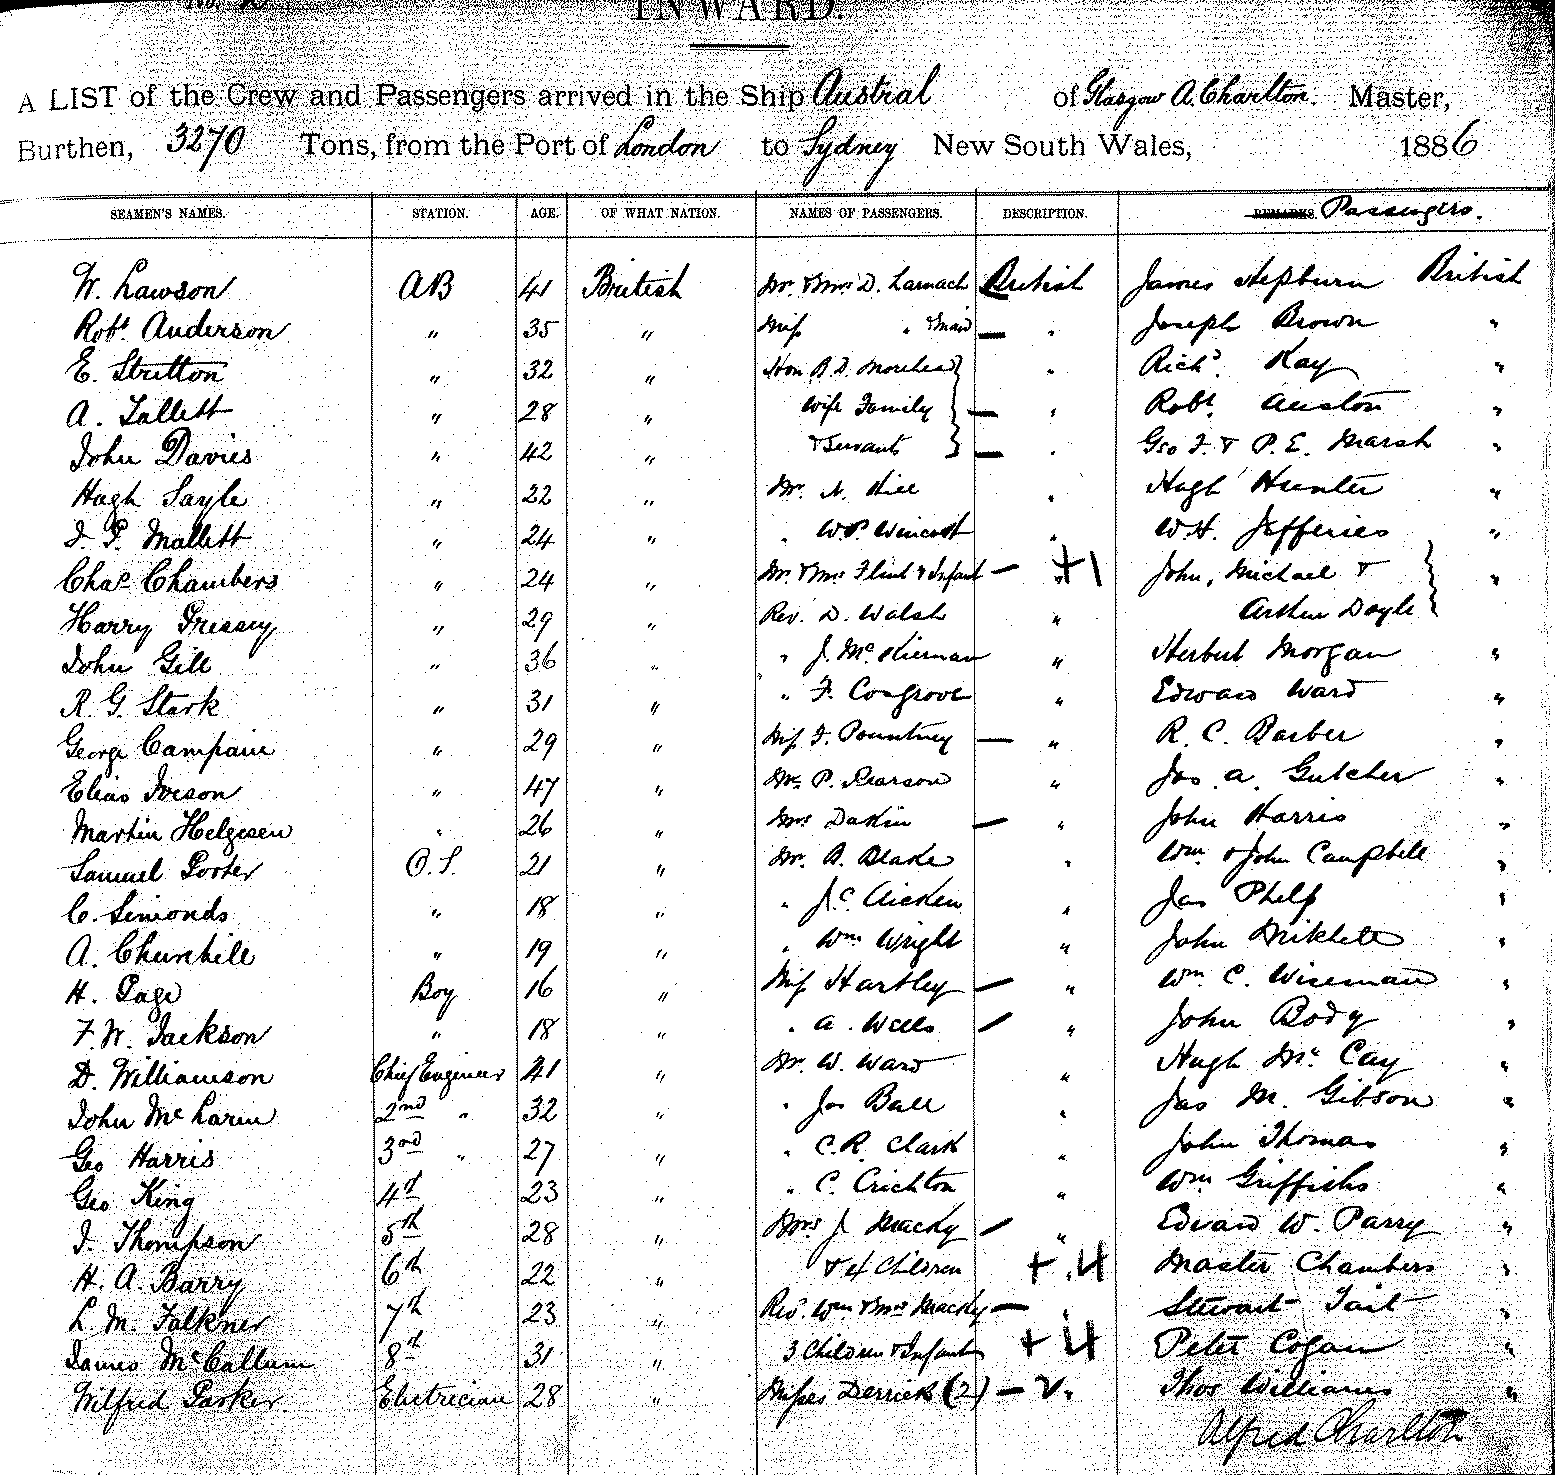 INWARD.
A LIST of the Crew and Passengers arrived in the Ship Austral of Glasgow A. Charlton. Master,
Burthen, 3270 Tons, from the Port of London to Sydney New South Wales, 1886
SEAMEN'S NAMES. STATION. AGE. OF WHAT NATION. NAMES OF PASSENGERS. DESCRIPTION. REMARKS. Passengers.
W. Lawson AB 41 British Mr. & Mrs D. Larnach British James Hepburn British
Robt Anderson " 35 " Miss " & Maid — " Joseph Brown "
E. Stretton " 32 " Hon B. D. Morehead " Richd. Kay "
A. Tallett " 28 " Wife Family — " Robt. Auston "
John Davies " 42 " & Servants — " Geo F. & P. E. Marsh "
Hugh Sayle " 22 " Mr. N. Hill " Hugh Hunter "
" 24 " " W.P. " W. H. Jefferies "
Chas Chambers " 24 " Mr. & Mrs Flint & Infant — " +1 John, Michael & "
Harry " 29 " Rev. D. Walsh " Arthur Doyle
John Gill " 36 " " J. McKiernan " Herbert Morgan "
R. G. Stark " 31 " " F. Cosgrove " Edward Ward "
George Campain " 29 " Miss F. Pountney — " R. C. Barber "
Elias Iveson " 47 " Mr. P. Pearson " Jas. A. Gutcher "
Martin Helgesen " 26 " Mrs Dakin — " John Harris "
Samuel Porter O.S. 21 " Mr. B. Blake " Wm & John Campbell "
C. Simonds " 18 " " J. C. Aicken " Jas Phelp "
A. Churchill " 19 " " Wm Wright " John "
H. Page Boy 16 " Miss Hartley — " Wm. C. Wiseman "
F. W. Jackson " 18 " " A. Wells — " John Body "
D. Williamson Chief Engineer 41 " Mr. W. Ward " Hugh Mc Cay "
John Mc Larin 2nd " 32 " " Jos Ball " Jas M. Gibson "
Geo Harris 3rd " 27 " " C. R. Clark " John Thomas "
Geo King 4th 23 " " C. Crichton " Wm Griffiths "
J. Thompson 5th 28 " Mrs J. Macky — " Edward W. Parry "
H. A. Barry 6th 22 " & 4 Children + 4 Master Chambers "
L. M. Falkner 7th 23 " Revd. Wm & Mrs Macky — " Stewart Tait "
James McCallum 8th 31 " 3 Children & Infant + 4 Peter Cogan "
Wilfred Parker. Electrician 28 " Misses Derrick (2) — " Thos Williams "
Alfred Charlton